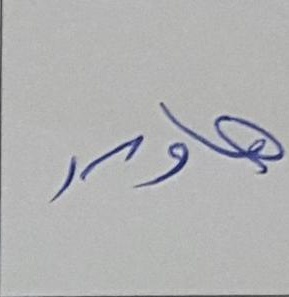 هاوسر